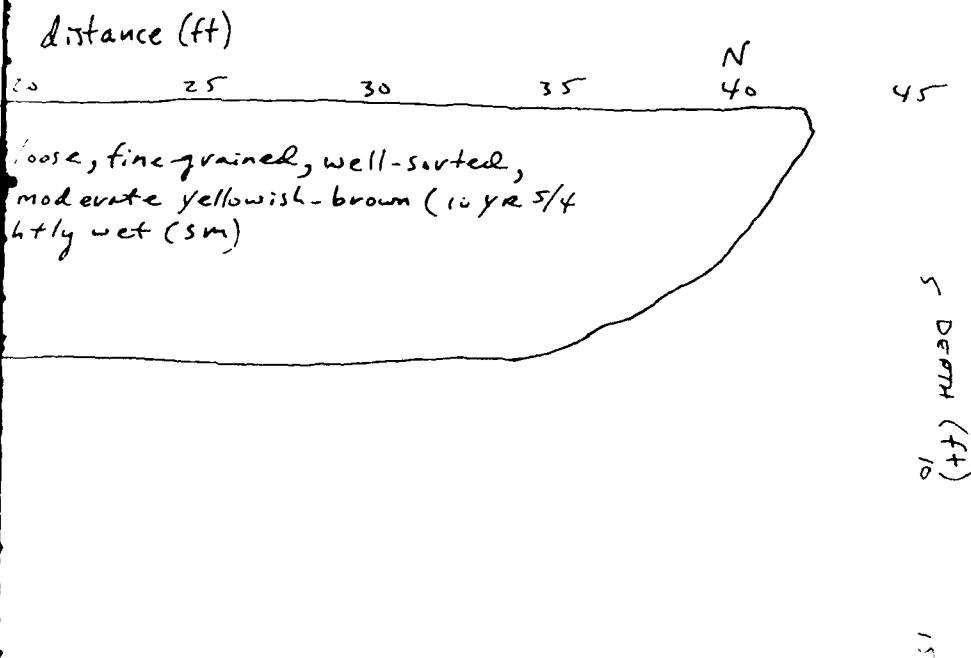 distance (ft)
N
20 25 30 35 40 45
loose, fine-grained, well-sorted,
moderate yellowish-brown (10 YR 5/4
htly wet (sm)
5 DEPTH (ft)
10
15